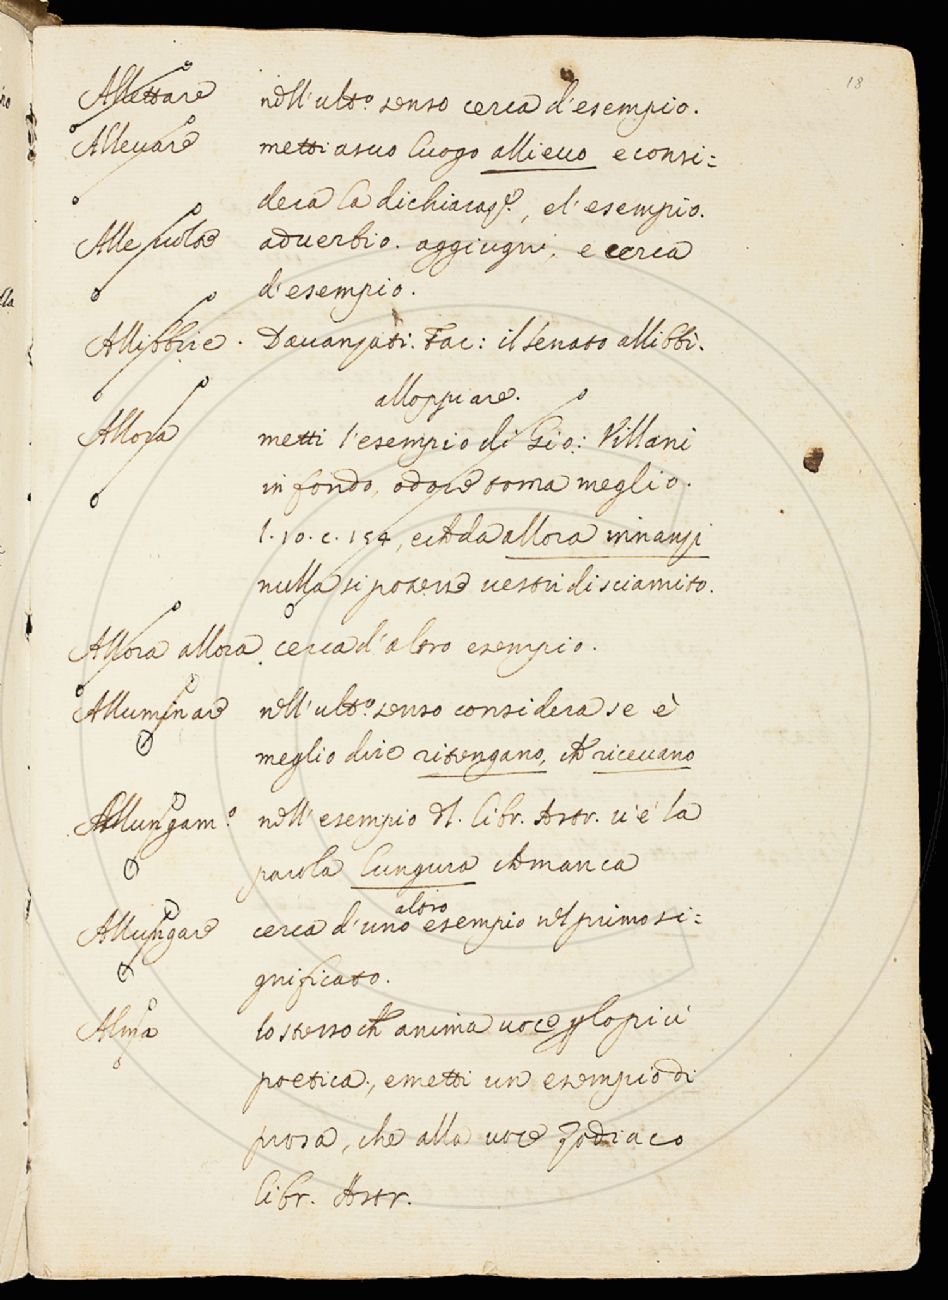 18
Allettare nell'ulto. senso cerca d'esempio.
Alleuare metti a suo luogo allieuo e consi=
dera la dichiaraze., e l'esempio.
Alle uolte aduerbio. aggiugni, e cerca
d'esempio.
Allibbire. Dauanzati. Tac: il Senato allibbì.
alloppiare.
Allora metti l'esempio di Gio: Villani
in fondo, odore toma meglio.
l. 10. c. 154, e che da allora innanzi
nulla si potesse uestir di sciamito.
Allora allora cerca d'altro esempio.
Alluminare nell'ulto. senso considera se è
meglio dire ritengano, che riceuano
Allungamo. nell'esempio del. Libr. Astr. u'è la
parola lungura che manca
altro
Allungare cerca d'uno esempio nel primo si=
gnificato.
Alma lo stesso che anima uoce per lo più
poetica, e metti un esempio di
prosa, che alla uoce Zodiaco
Libr. Astr.